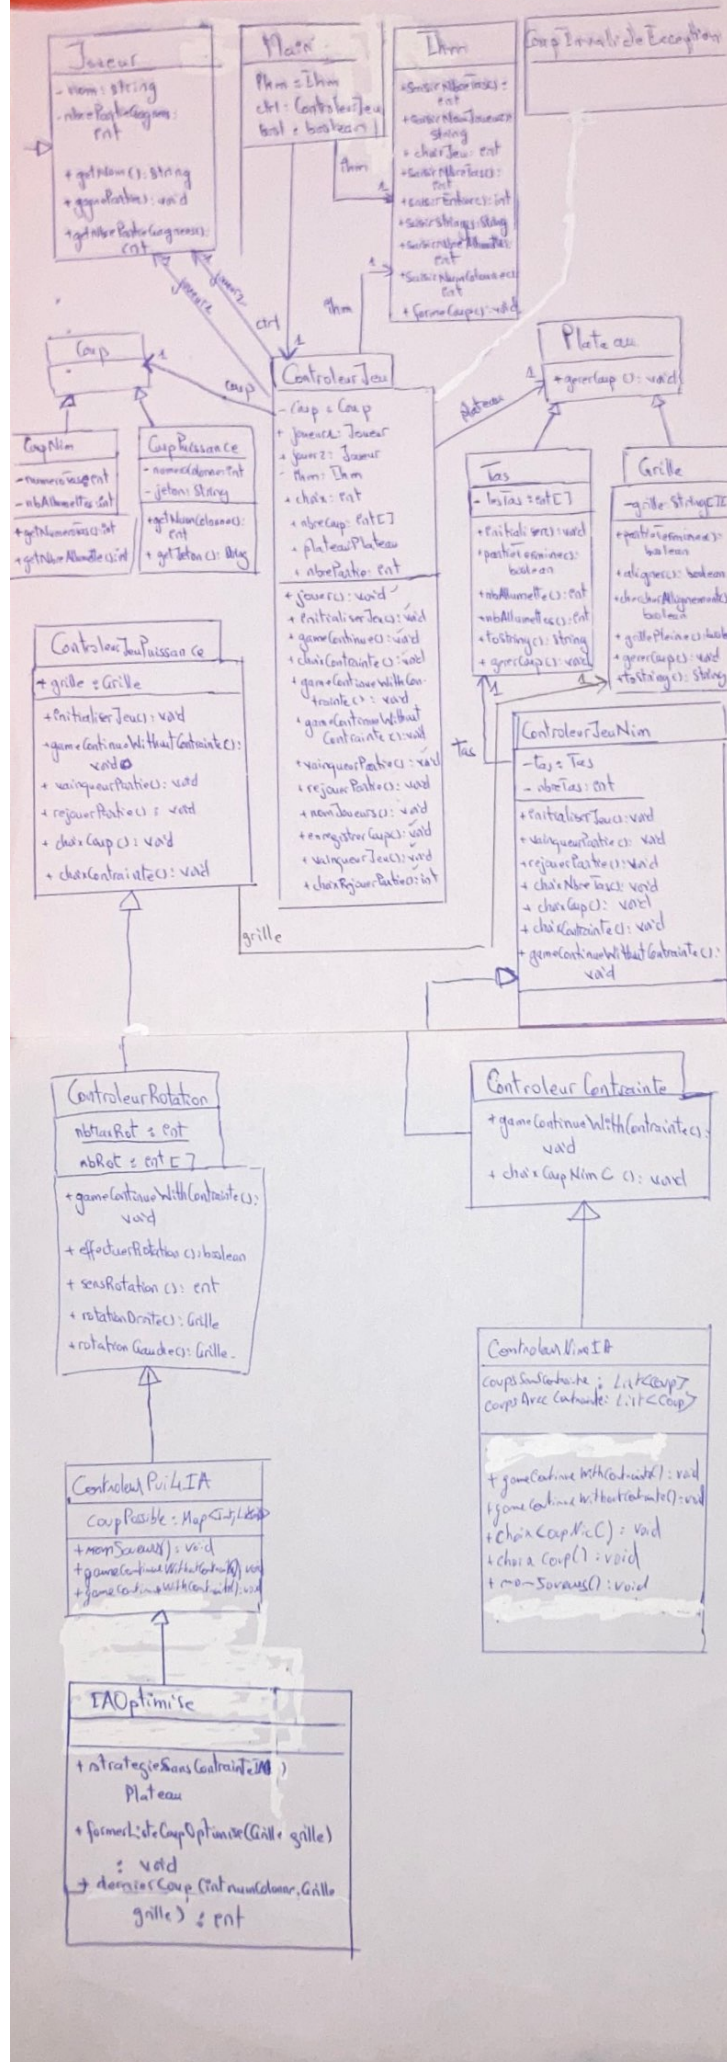 Joueur
- nom : string
- nbrePartieGagnes :
ent
+ getNom() : String
+ gagnePartie() : void
+ getNbrePartieGagnees() :
ent
Main
Ihm = Ihm
ctrl : ControleurJeu
bool : boolean
Ihm
+ SaisirNbreTas() :
ent
+ SaisirNomJoueur() :
string
+ choixJeu : ent
+ saisirNbreTas() :
ent
+ saisirEntier() : int
+ saisirString() : String
+ saisirNbreAllumettes
ent
+ SaisirNumColonne() :
ent
+ formeCoup() : void
CoupInvalideException
ihm
1
1
joueur1
joueur2
ctrl
1
ihm
Coup
1
coup
CoupNim
- numeroTas : ent
- nbAllumettes : int
+ getNumeroTas() : int
+ getNbreAllumette() : int
CoupPuissance
- numeroColonne : int
- jeton : String
+ getNumColonne() :
ent
+ getJeton() :
ControleurJeu
- Coup : Coup
+ joueur1 : Joueur
+ joueur2 : Joueur
- ihm : Ihm
+ choix : ent
+ nbreCoup : ent[]
+ plateau Plateau
+ nbrePartie : ent
+ jouer() : void
+ initialiserJeu() : void
+ gameContinue() : void
+ choixContrainte() : void
+ gameContinueWithCon-
trainte() : void
+ gameContinueWithout
Contrainte() : void
+ vainqueurPartie() : void
+ rejouerPartie() : void
+ nomJoueurs() : void
+ enregistrerCoup() : void
+ vainqueurJeu() : void
+ choixRejouerPartie() : int
plateau
1
Plateau
+ gererCoup() : void
Tas
- lesTas : ent[]
+ initialiser() : void
+ partieTerminee() :
boolean
+ nbAllumette() : int
+ nbAllumettes() : int
+ toString() : String
+ gererCoup() : void
Grille
- grille : String[][]
+ partieTerminee() :
boolean
+ aligner() : boolean
+ chercherAlignement()
boolean
+ grillePleine() :
+ gererCoup() : void
+ toString() : String
1
1
Tas
ControleurJeuPuissance
+ grille : Grille
+ initialiserJeu() : void
+ gameContinueWithoutContrainte() :
void
+ vainqueurPartie() : void
+ rejouerPartie() : void
+ choixCoup() : void
+ choixContrainte() : void
grille
ControleurJeuNim
- tas : Tas
- nbreTas : int
+ initialiserJeu() : void
+ vainqueurPartie() : void
+ rejouerPartie() : void
+ choixNbreTas() : void
+ choixCoup() : void
+ choixContrainte() : void
+ gameContinueWithoutContrainte() :
void
ControleurRotation
nbMaxRot : ent
nbRot : ent[]
+ gameContinueWithContrainte() :
void
+ effectuerRotation() : boolean
+ sensRotation() : ent
+ rotationDroite() : Grille
+ rotationGauche() : Grille
Controleur Contrainte
+ gameContinueWithContrainte() :
void
+ choixCoupNimC() : void
ControleurPui4IA
coupPossible : Map<int,
+ nomJoueurs() : void
+ gameContinueWithoutContrainte() void
+ gameContinueWithContrainte() : void
ControleurNimIA
coupsSansContrainte : List<Coup>
coupsAvecContrainte : List<Coup>
+ gameContinueWithContrainte() : void
+ gameContinueWithoutContrainte() : void
+ choixCoupNimC() : void
+ choixCoup() : void
+ nomJoueurs() : void
IAOptimise
+ strategieSansContrainteIA( )
Plateau
+ formerListeCoupOptimise(Grille grille)
: void
+ dernierCoup (int numColonne, Grille
grille) : ent